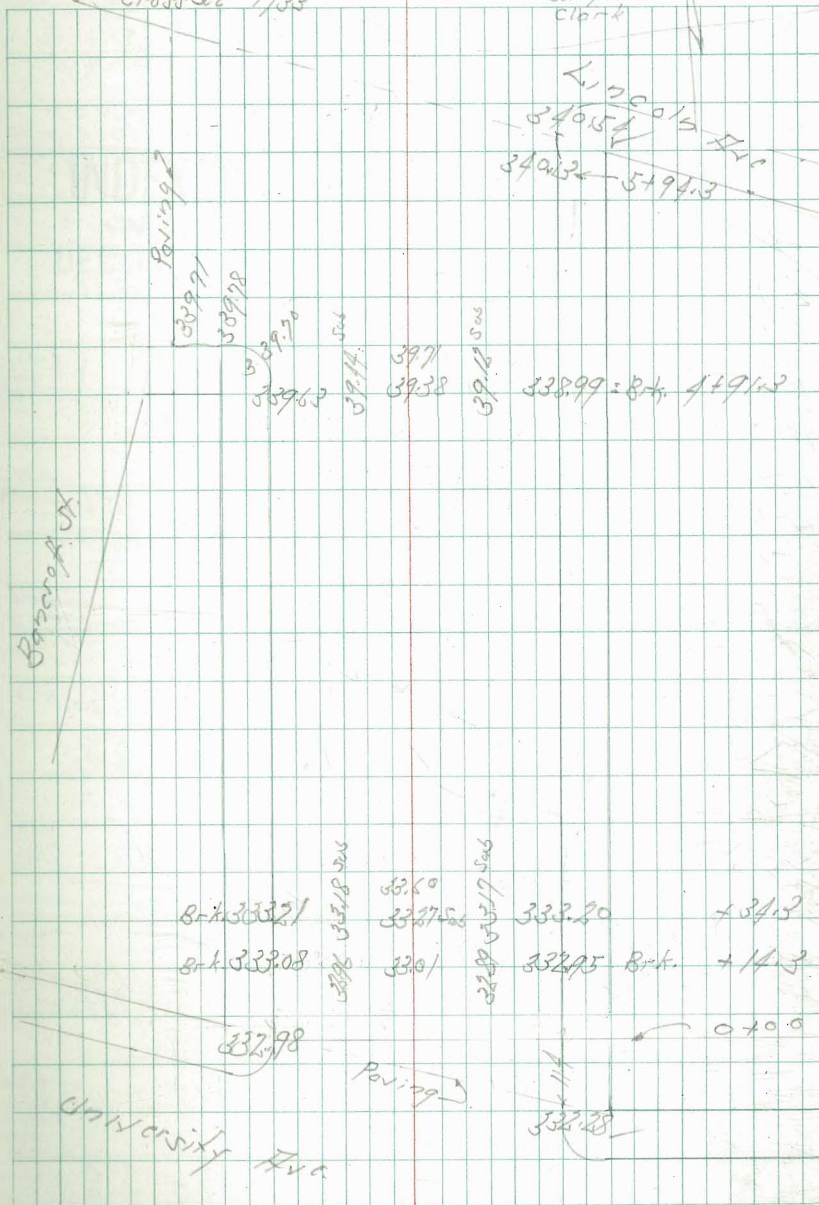 Clark
Lincoln Ave
340.54
340.13 5+94.3
Paving?
339.71
339.78
339.70
339.63 39.14 Sub 39.71 39.38 39.12 Sub 338.99 = Brk. 4+91.3
Bancroft St.
33.60
Brk. 333.21 33.18 Sub 33.27 Sub 33.17 Sub 333.20 +34.3
Brk. 333.08 33.01 332.95 Brk. +14.3
332.98
0+0.0
Paving
332.28
University Ave